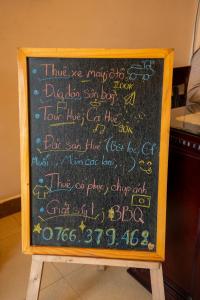 Thuê xe máy, ô tô
Đưa đón sân bay
200K
Tour Huế, Ca Huế
90K
Đặc sản Huế (Bột lọc, Cf
Muối, Mắm các loại, )
Thuê cổ phục, chụp ảnh
Giặt sấy, BBQ
0766.379.462